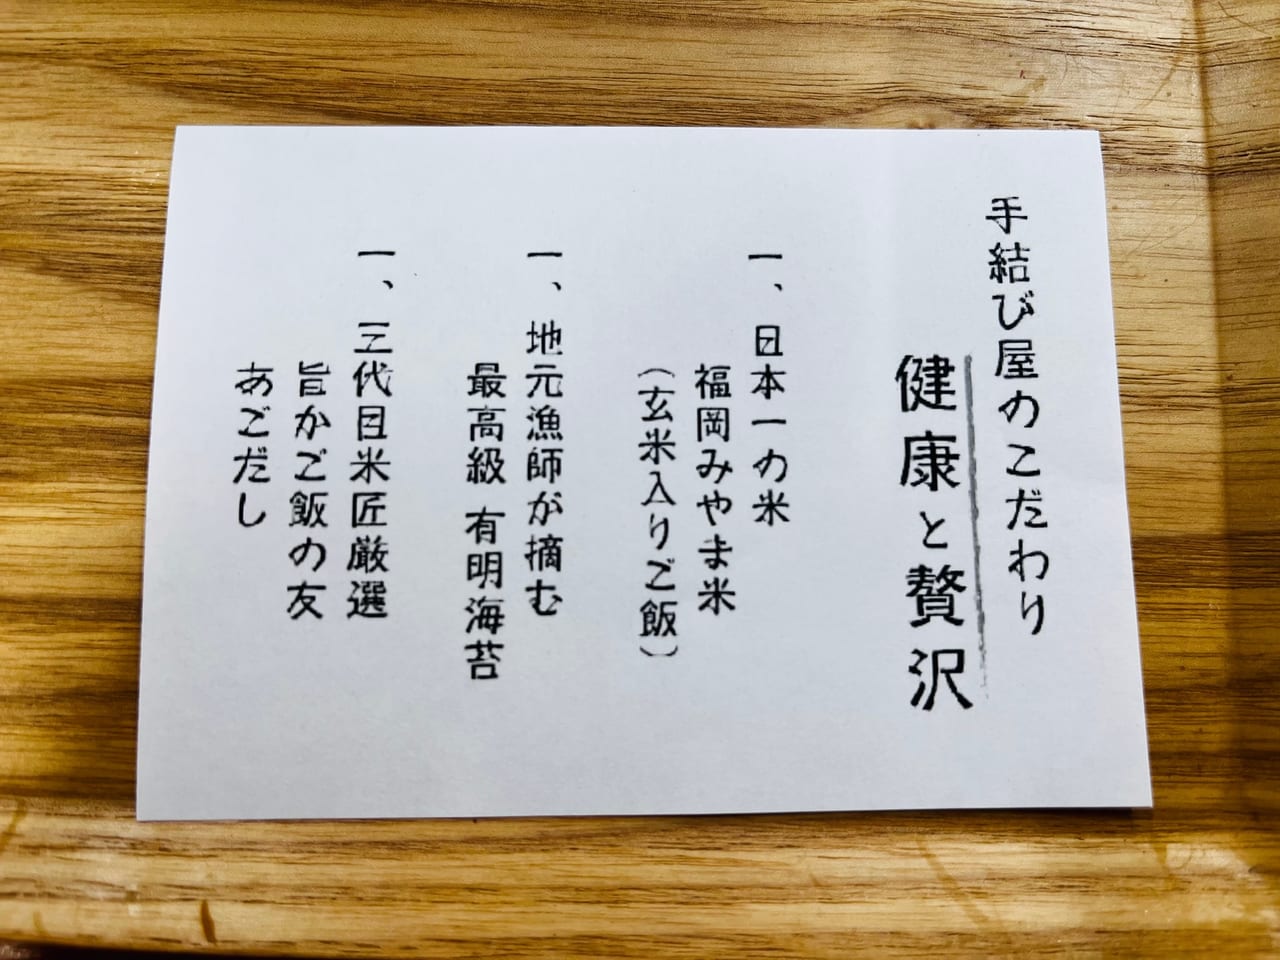 手結び屋のこだわり
健康と贅沢
一、日本一の米
福岡みやま米
（玄米入りご飯）
一、地元漁師が摘む
最高級 有明海苔
一、三代目米匠厳選
旨かご飯の友
あごだし